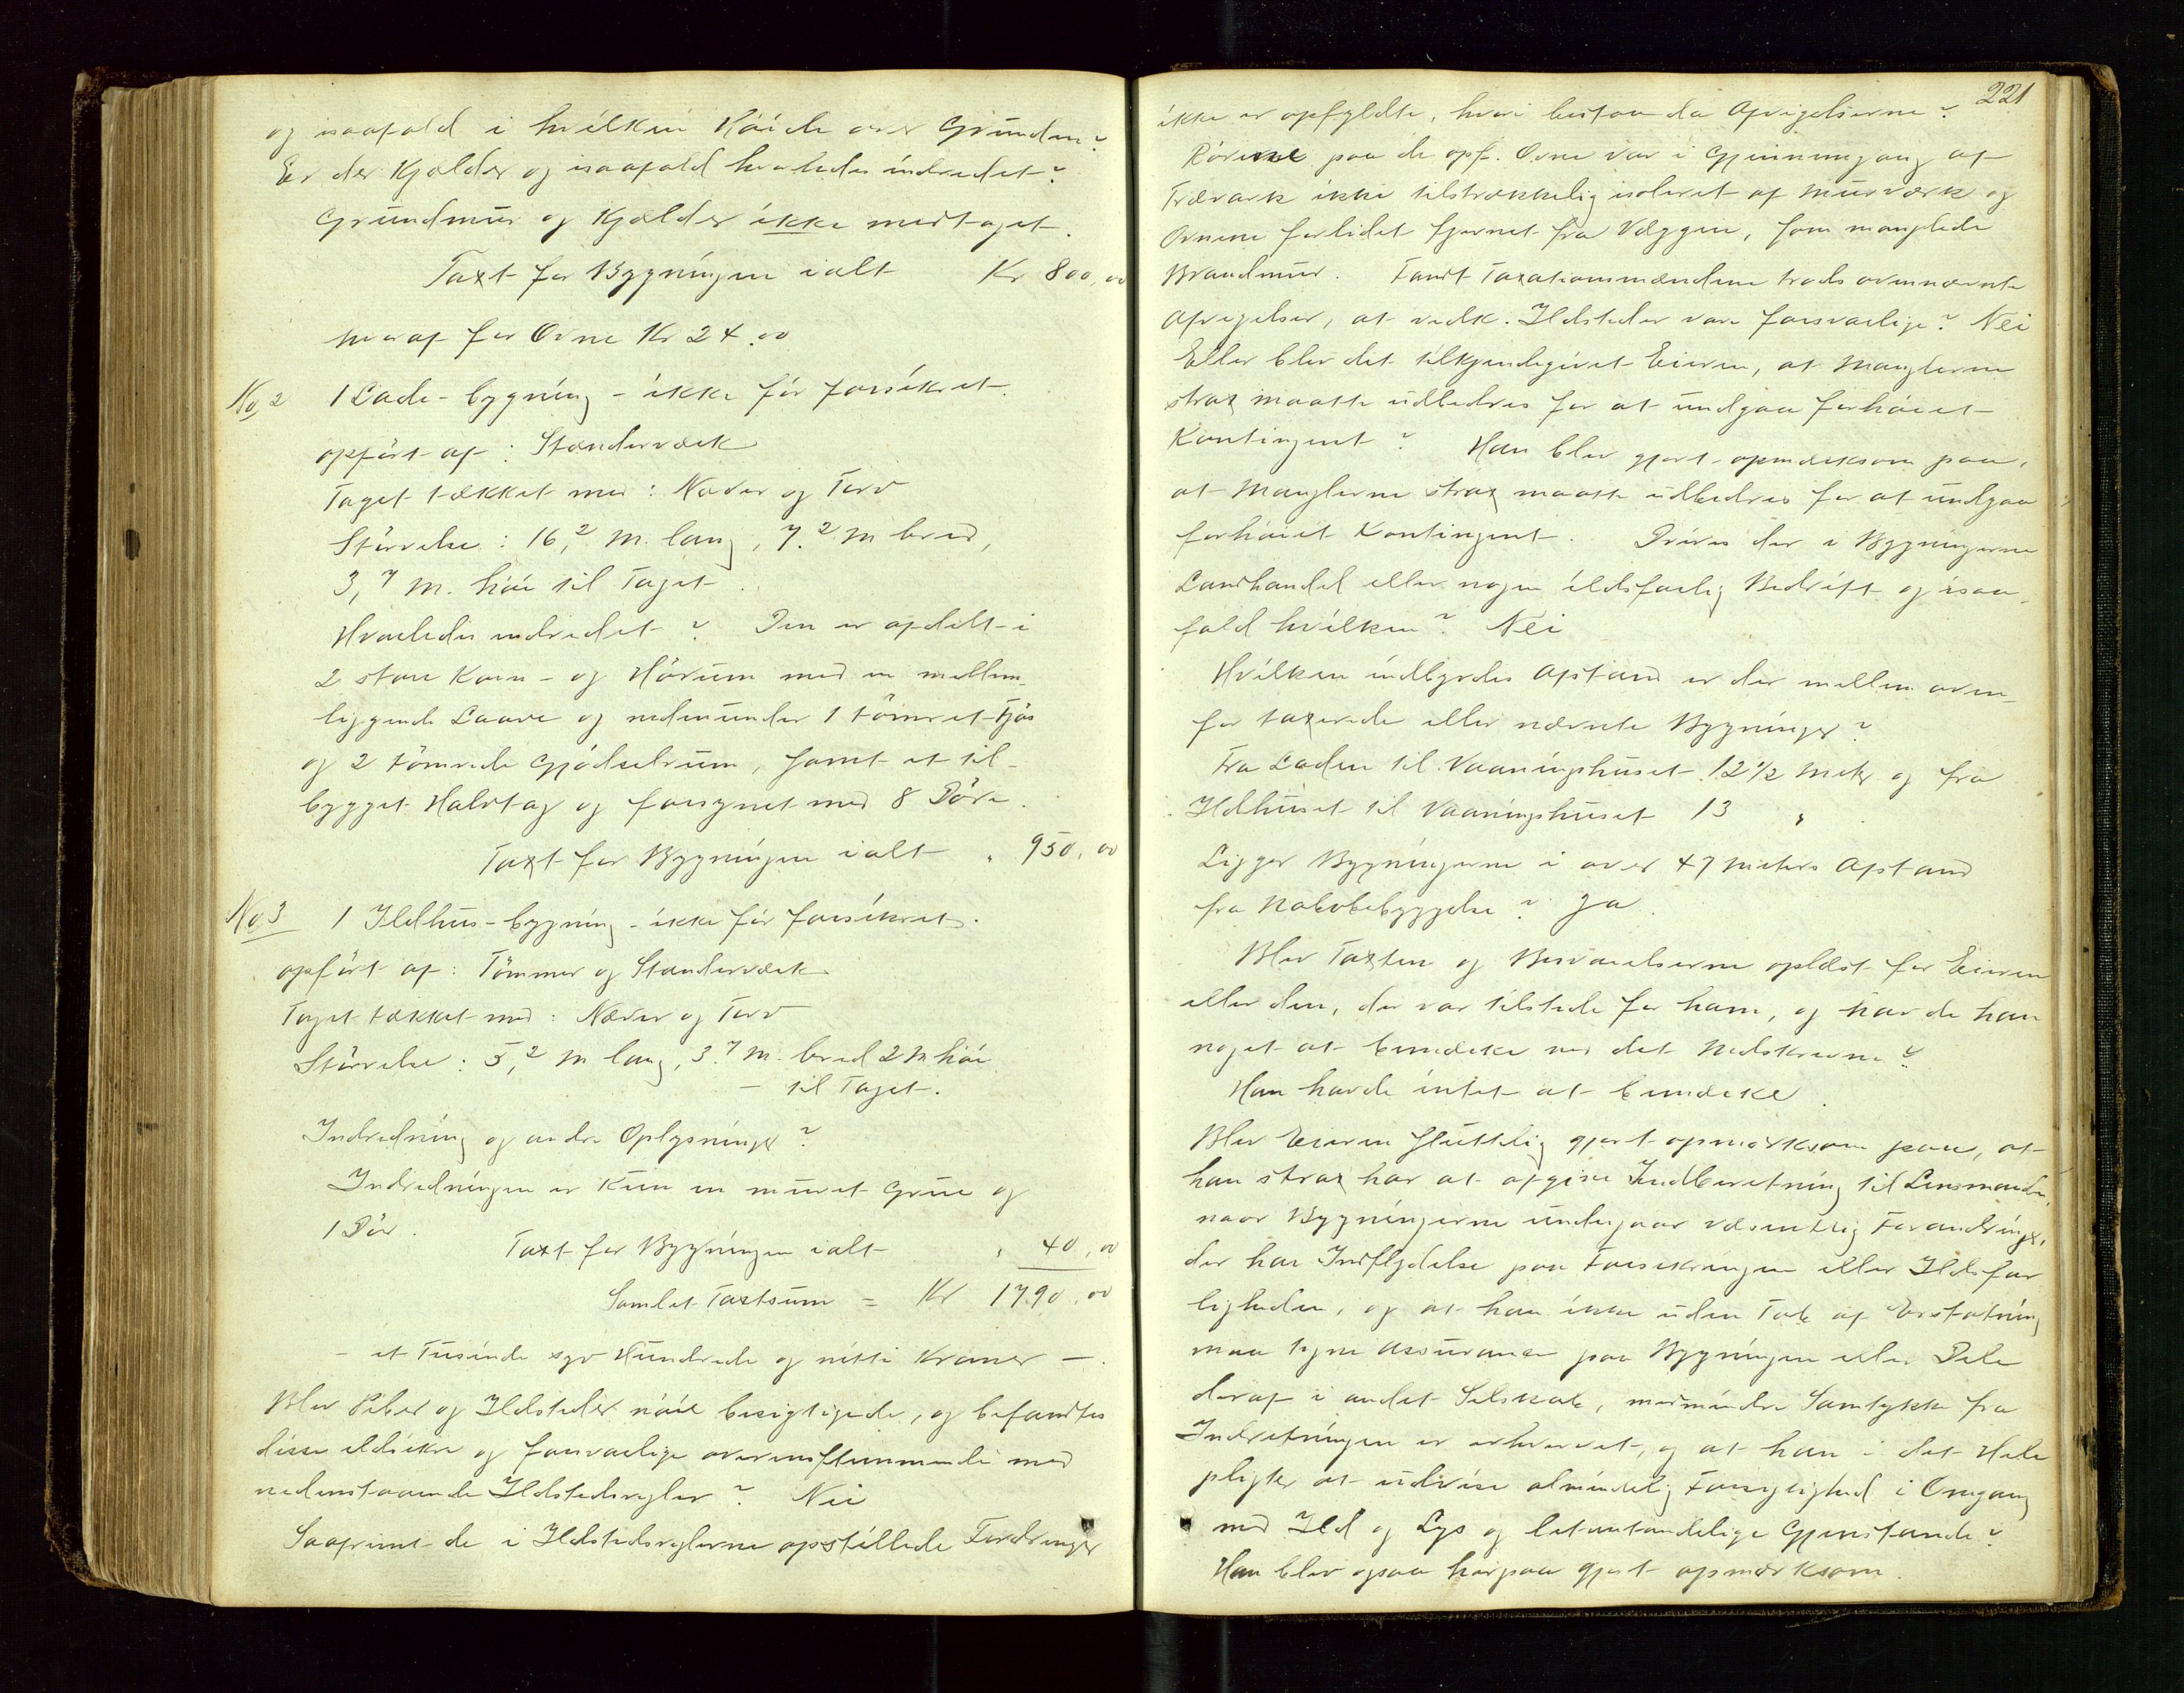 og isaafald i hvilken Höide over Grunden?
Er der Kjælder og isaafald hvorledes indredet?
Grundmur og Kjælder ikke medtaget.
Taxt for Bygningen ialt Kr 800,00
hvoraf for Ovne Kr 24.00
No 2 1 Lade-bygning - ikke för forsikret.
opfört af: Stænderværk
Taget tækket med: Næver og Torv
Störrelse: 16,2 m. lang, 7,2 m bred,
3,7 m. höi til Taget.
Hvorledes indredet? Den er afdelt i
2 store Korn- og Hörum med en mellem-
liggende Laave og nedenunder 1 tömret Fjös
og 2 tömrede Gjödselrum, samt et til-
bygget Halvtag og forsynet med 8 Döre.
Taxt for Bygningen ialt " 950,00
No 3 1 Ildhus-bygning - ikke för forsikret.
opfört af: Tömmer og Stænderværk
Taget tækket med: Næver og Torv
Störrelse: 5,2 m lang, 3,7 m. bred 2 m höi
- til Taget.
Indredning og andre Oplysninger?
Indredningen er kun en muret Grue og
1 Dör.
Taxt for Bygningen ialt " 40,00
Samlet Taxtsum = Kr 1790,00
- et Tusinde syv Hundrede og nitti Kroner -.
Blev Piber og Ildsteder nöie besigtigede, og befandtes
disse ildsikre og forsvarlige overensstemmende med
nedenstaaende Ildstedsregler? Nei
Saafremt de i Ildstedsreglerne opstillede Fordringer
221
ikke er opfyldte, hvori bestaa da Afvigelserne?
Rörene paa de opf. Ovne var i Gjennemgang af
Træværk ikke tilstrækkelig isoleret af Murværk og
Ovnene forlidet fjernet fra Væggen, som manglede
Brandmur. Fandt Taxationsmændene trods ovennævnte
Afvigelser, at vedk. Ildsteder vare forsvarlige? Nei
Eller blev det tilkjendegivet Eieren, at Manglerne
strax maatte udbedres for at undgaa forhöiet
Kontingent? Han blev gjort opmærksom paa,
at Manglerne strax maatte udbedres for at undgaa
forhöiet Kontingent. Drives der i Bygningerne
Landhandel eller nogen ildsfarlig Bedrift og isaa-
fald hvilken? Nei
Hvilken indbyrdes Afstand er der mellem oven-
for taxerede eller nævnte Bygninger?
Fra Laden til Vaaningshuset 12 1/2 Meter og fra
Ildhuset til Vaaningshuset 13 "
Ligger Bygningerne i over 47 Meters Afstand
fra Nabobebyggelse? Ja.
Blev Taxten og Besvarelserne oplæst for Eieren
eller den, der var tilstede for ham, og havde han
noget at bemærke ved det Nedskrevne?
Han havde intet at bemærke.
Blev Eieren sluttelig gjort opmærksom paa, at
han strax har at afgive Indberetning til Lensmanden,
naar Bygningerne undergaar væsentlig Forandringer,
der har Indflydelse paa Forsikringen eller Ildsfar
ligheden, og at han ikke uden Tab af Erstatning
maa tegne Assurance paa Bygningen eller Dele
deraf i andet Selskab, medmindre Samtykke fra
Indretningen er erhvervet, og at han i det Hele
pligter at udvise almindelig Forsigtighed i Omgang
med Ild og Lys og letantændelige Gjenstande?
Han blev ogsaa herpaa gjort opmærksom.